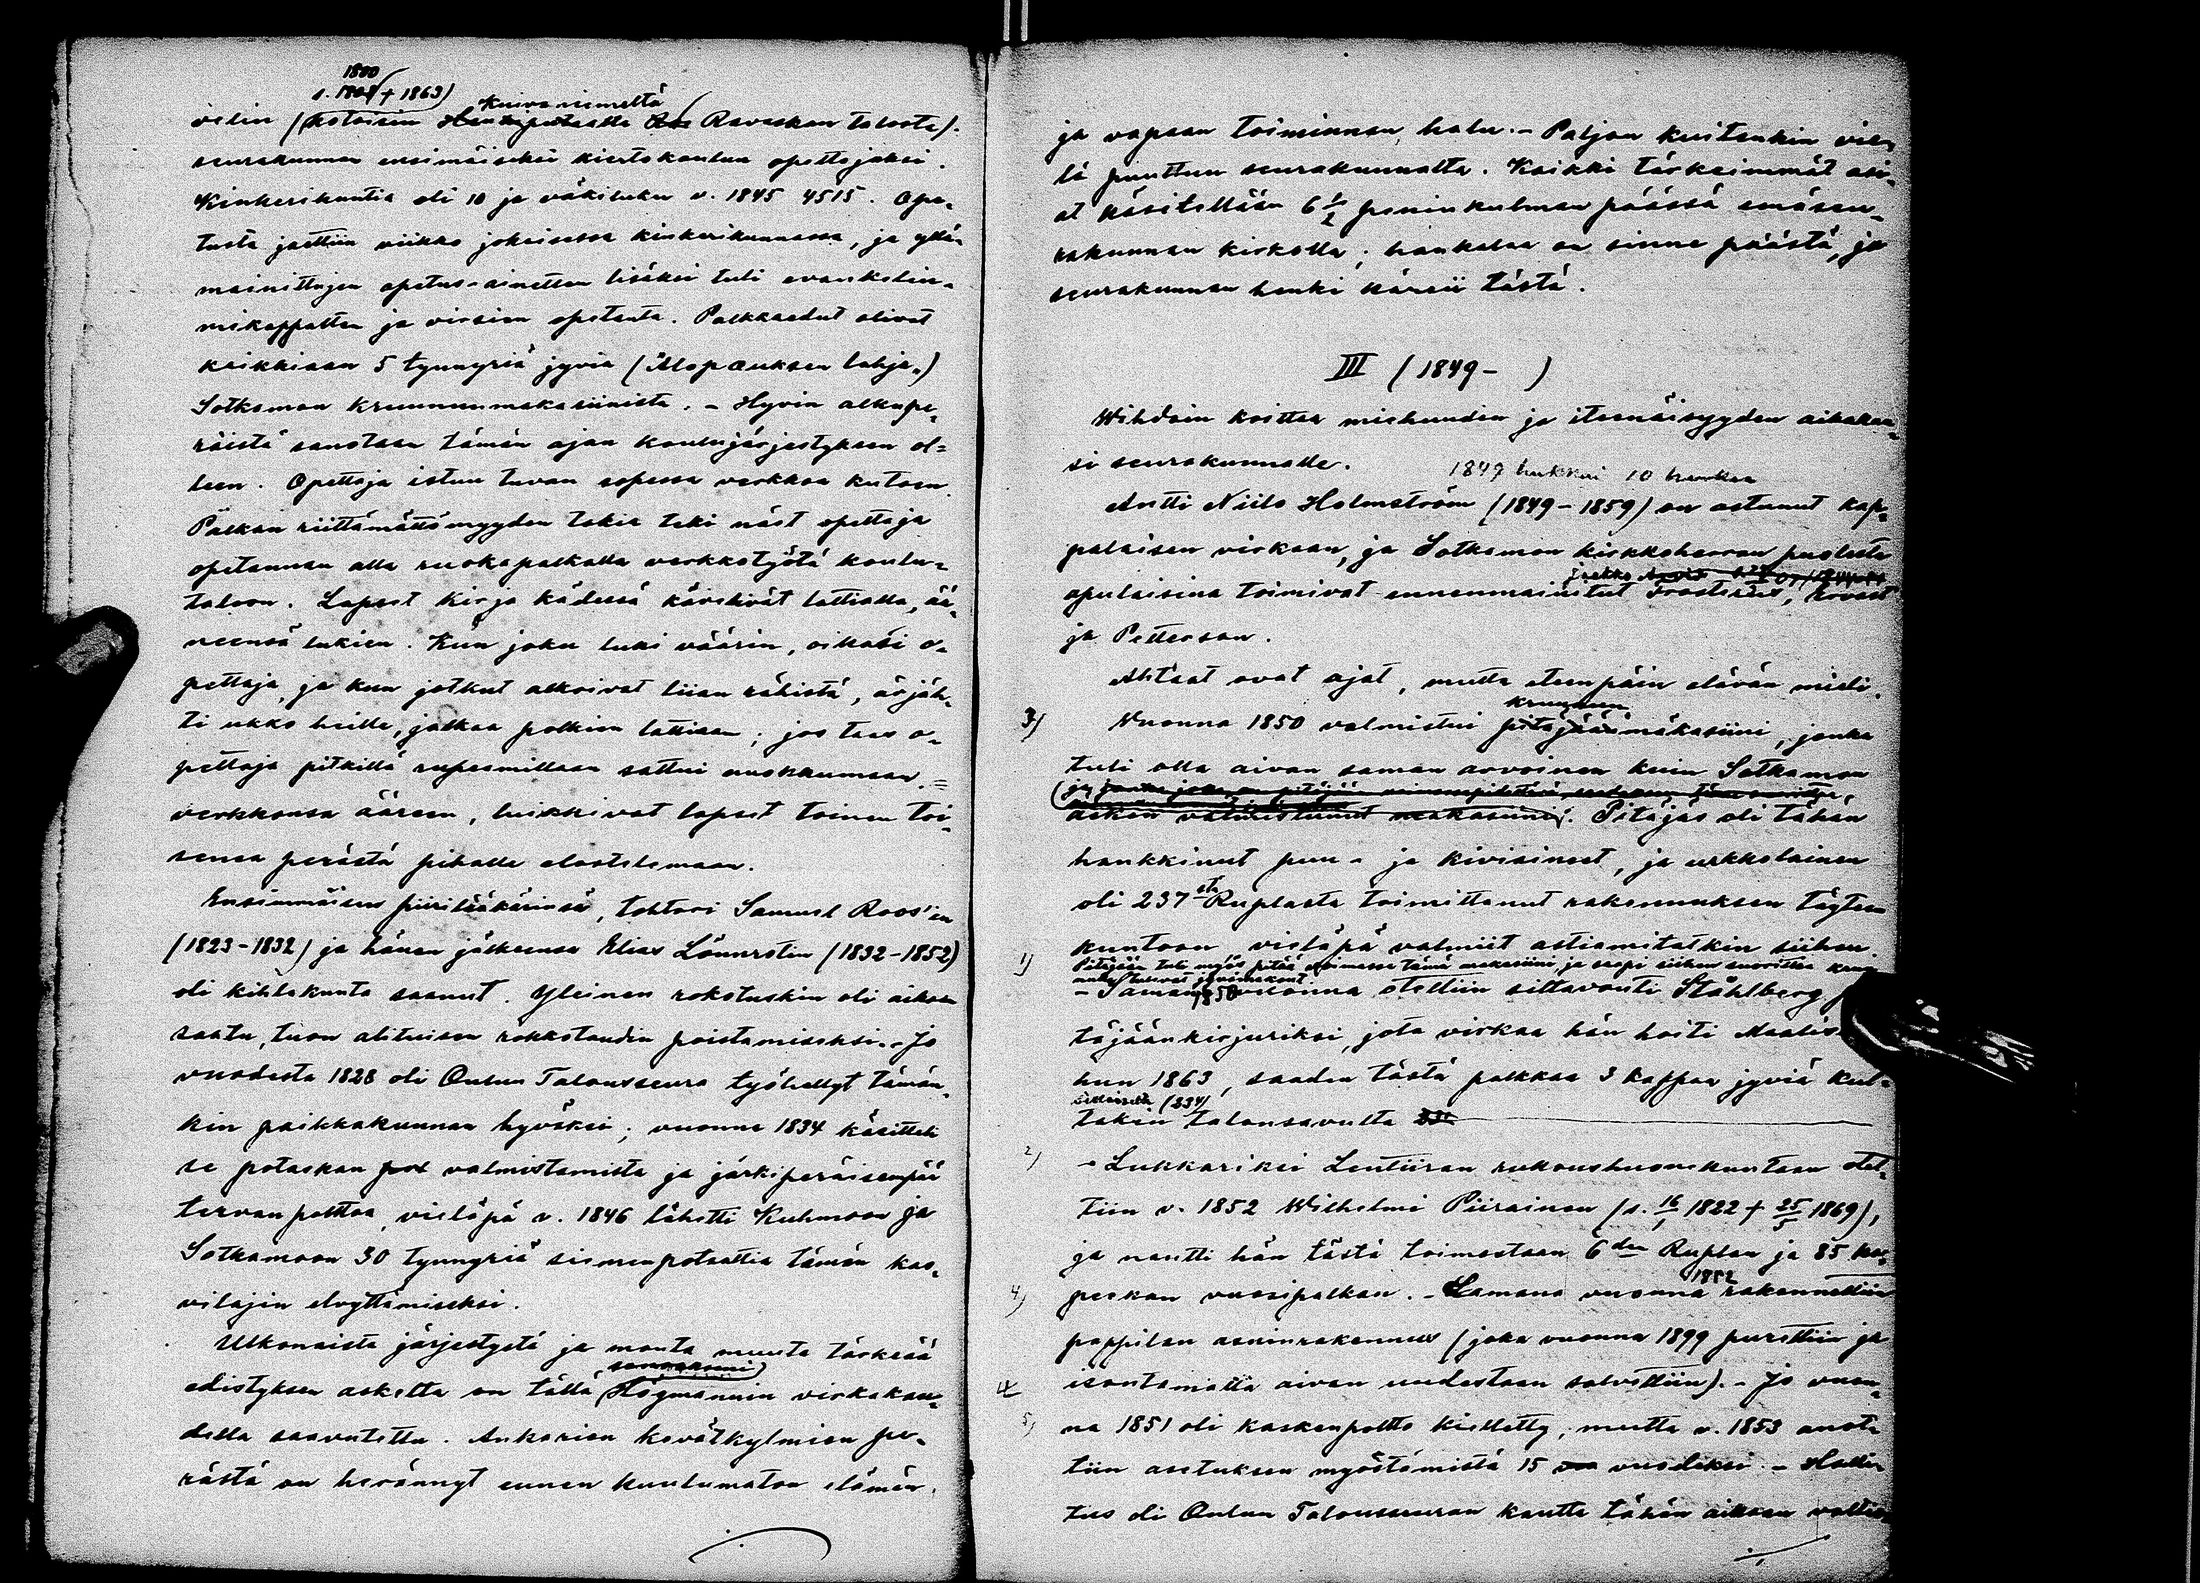 1800
s. 1801 + 1863)
Kuivaniemeltä
velin (kotoisin Haukiputaalta Ravaskan talosta).
seurakunnan ensimäiseksi kiertokoulun opettajaksi.
Kinkerikuntia oli 10 ja väkiluku v. 1845 4515. Ope-
tusta jaettiin viikko jokaisessa kinkerikunnassa, ja yllä-
mainittujen opetus-ainetten lisäksi tuli evankeliu-
mikappalten ja virsien opetanta. Palkkaedut olivat
kaikkiaan 5 tynnyriä jyviä (Alopæuksen lahja.)
Sotkamon kruununmakasiinista. - Hyvin alkupe-
räistä sanotaan tämän ajan koulujärjestyksen ol-
leen. Opettaja istuu tuvan sopessa verkkoa kutoen.
Palkan riittämättömyyden takia teki näet opettaja
opetannan alla ruokapalkalla verkkotyötä koulu-
taloon. Lapset kirja kädessä kävelivät lattialla, ää-
neensä lukien. Kun joku luki väärin, oikasi o-
pettaja, ja kun jotkut alkoivat liian rähistä, ärjäh-
ti ukko heille, jalkaa polkien lattiaan; jos taas o-
pettaja pitkillä rupeamillaan sattui nuokkumaan
verkkonsa ääreen, luikkivat lapset toinen toi-
sensa perästä pihalle elostelemaan.
Ensimmäisen piirilääkärinsä, tohtori Samuel Roos'in
(1823-1832) ja hänen jälkeensä Elias Lönnrotin (1832-1852)
oli kihlakunta saanut. Yleinen rokotuskin oli aikaan
saatu, tuon alituisen rokkotaudin poistamiseksi. - Jo
vuodesta 1828 oli Oulun Talousseura työskellyt tämän-
kin paikkakunnan hyväksi; vuonna 1834 käsitteli
se potaskan pol valmistamista ja järkiperäisempää
tervanpolttoa, vieläpä v. 1846 lähetti Kuhmoon ja
Sotkamoon 30 tynnyriä siemenpotaattia tämän kas-
vilajin elvyttämiseksi.
Ulkonaista järjestystä ja monta muuta tärkeää
edistyksen askelta on tällä Högmannin virkakau-
della saavutettu. Ankarien kevätkylmien pe-
rästä on herännyt ennen kuulumaton elämän
ja vapaan toiminnan halu. - Paljon kuitenkin vie-
lä puuttuu seurakunnalta. Kaikki tärkeimmät asi-
at käsitellään 6 1/2 peninkulman päässä emäseu-
rakunnan kirkolla; hankalaa on sinne päästä, ja
seurakunnan henki kärsii tästä.
III (1849- )
Wihdoin koittaa miehuuden ja itsenäisyyden aikakau-
si seurakunnalle.
1849 hukkui 10 henkeä
Antti Niilo Holmström (1849-1859) on astunut kap-
palaisen virkaan, ja Sotkamon kirkkoherran puolesta
apulaisina toimivat ennenmainitut Frosterus,
ja Petterson.
Ahtaat ovat ajat, mutta eteenpäin elävän mieli.
kruunun
3) Vuonna 1850 valmistui pitäjään makasiini, jonka
tuli olla aivan saman arvoinen kuin Sotkamon
äsken valmistunut makasiini. Pitäjäs oli tähän
hankkinut puu- ja kiviaineet, ja urkkolainen
oli 237 sta Ruplasta toimittanut rakennuksen täyteen
kuntoon, vieläpä valmiit astiamitatkin siihen.
1) Pitäjään tuli myös pitää voimassa tämä makasiini, ja saapi siihen suorittaa
1850
- Samana vuonna otettiin siltavouti Ståhlberg
täjäänkirjuriksi, jota virkaa hän hoiti Maalis
hun 1863, saaden tästä palkkaa 3 kappaa jyviä kul-
(334)
takin talonsavulta
2) - Lukkariksi Lentiiran rukoushuonekuntaan otet-
tiin v. 1852 Wilhelmi Piirainen (s. 16/1 1822 + 25/5 1869),
ja nautti hän tästä toimestaan 6 den Ruplan ja 85 ko-
1852
4) peekan vuosipalkan. - Samana vuonna rakennettiin
pappilan asuinrakennus (joka vuonna 1899 purettiin ja
isontamatta aivan uudestaan salvettiin). - Jo vuon-
5) na 1851 oli kaskenpoltto kielletty, mutta v. 1853 anot-
tiin asetuksen myöntämistä 15 vuodeksi. - Halli-
tus oli Oulun Talousseuran kautta tähän aikaan